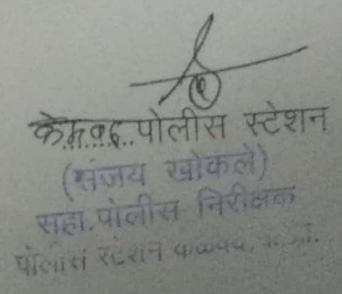 पोलीस स्टेशन
(संजय खोकले)
सहा. पोलीस निरीक्षक
पोलीस स्टेशन कळवद,